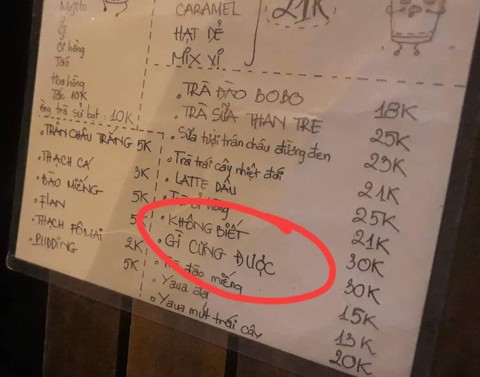 Mojito
Ổi
Hoa hồng
Tắc 10K
10K
TRÂN CHÂU TRẮNG 5K
THẠCH CÁ 3K
ĐÀO MIẾNG 5K
FLAN 5K
THẠCH PHÔ MAI 2K
PUDDING 5K
CARAMEL
HẠT DẺ
MIX VỊ
21K
TRÀ ĐÀO BOBO 18K
TRÀ SỮA THAN TRE 25K
Sữa tươi trân châu đường đen 23K
Trà trái cây nhiệt đới 21K
LATTE DÂU 25K
hồng 21K
KHÔNG BIẾT 30K
GÌ CŨNG ĐƯỢC 30K
đào miếng 15K
Yaua đá 13K
Yaua mứt trái cây 20K